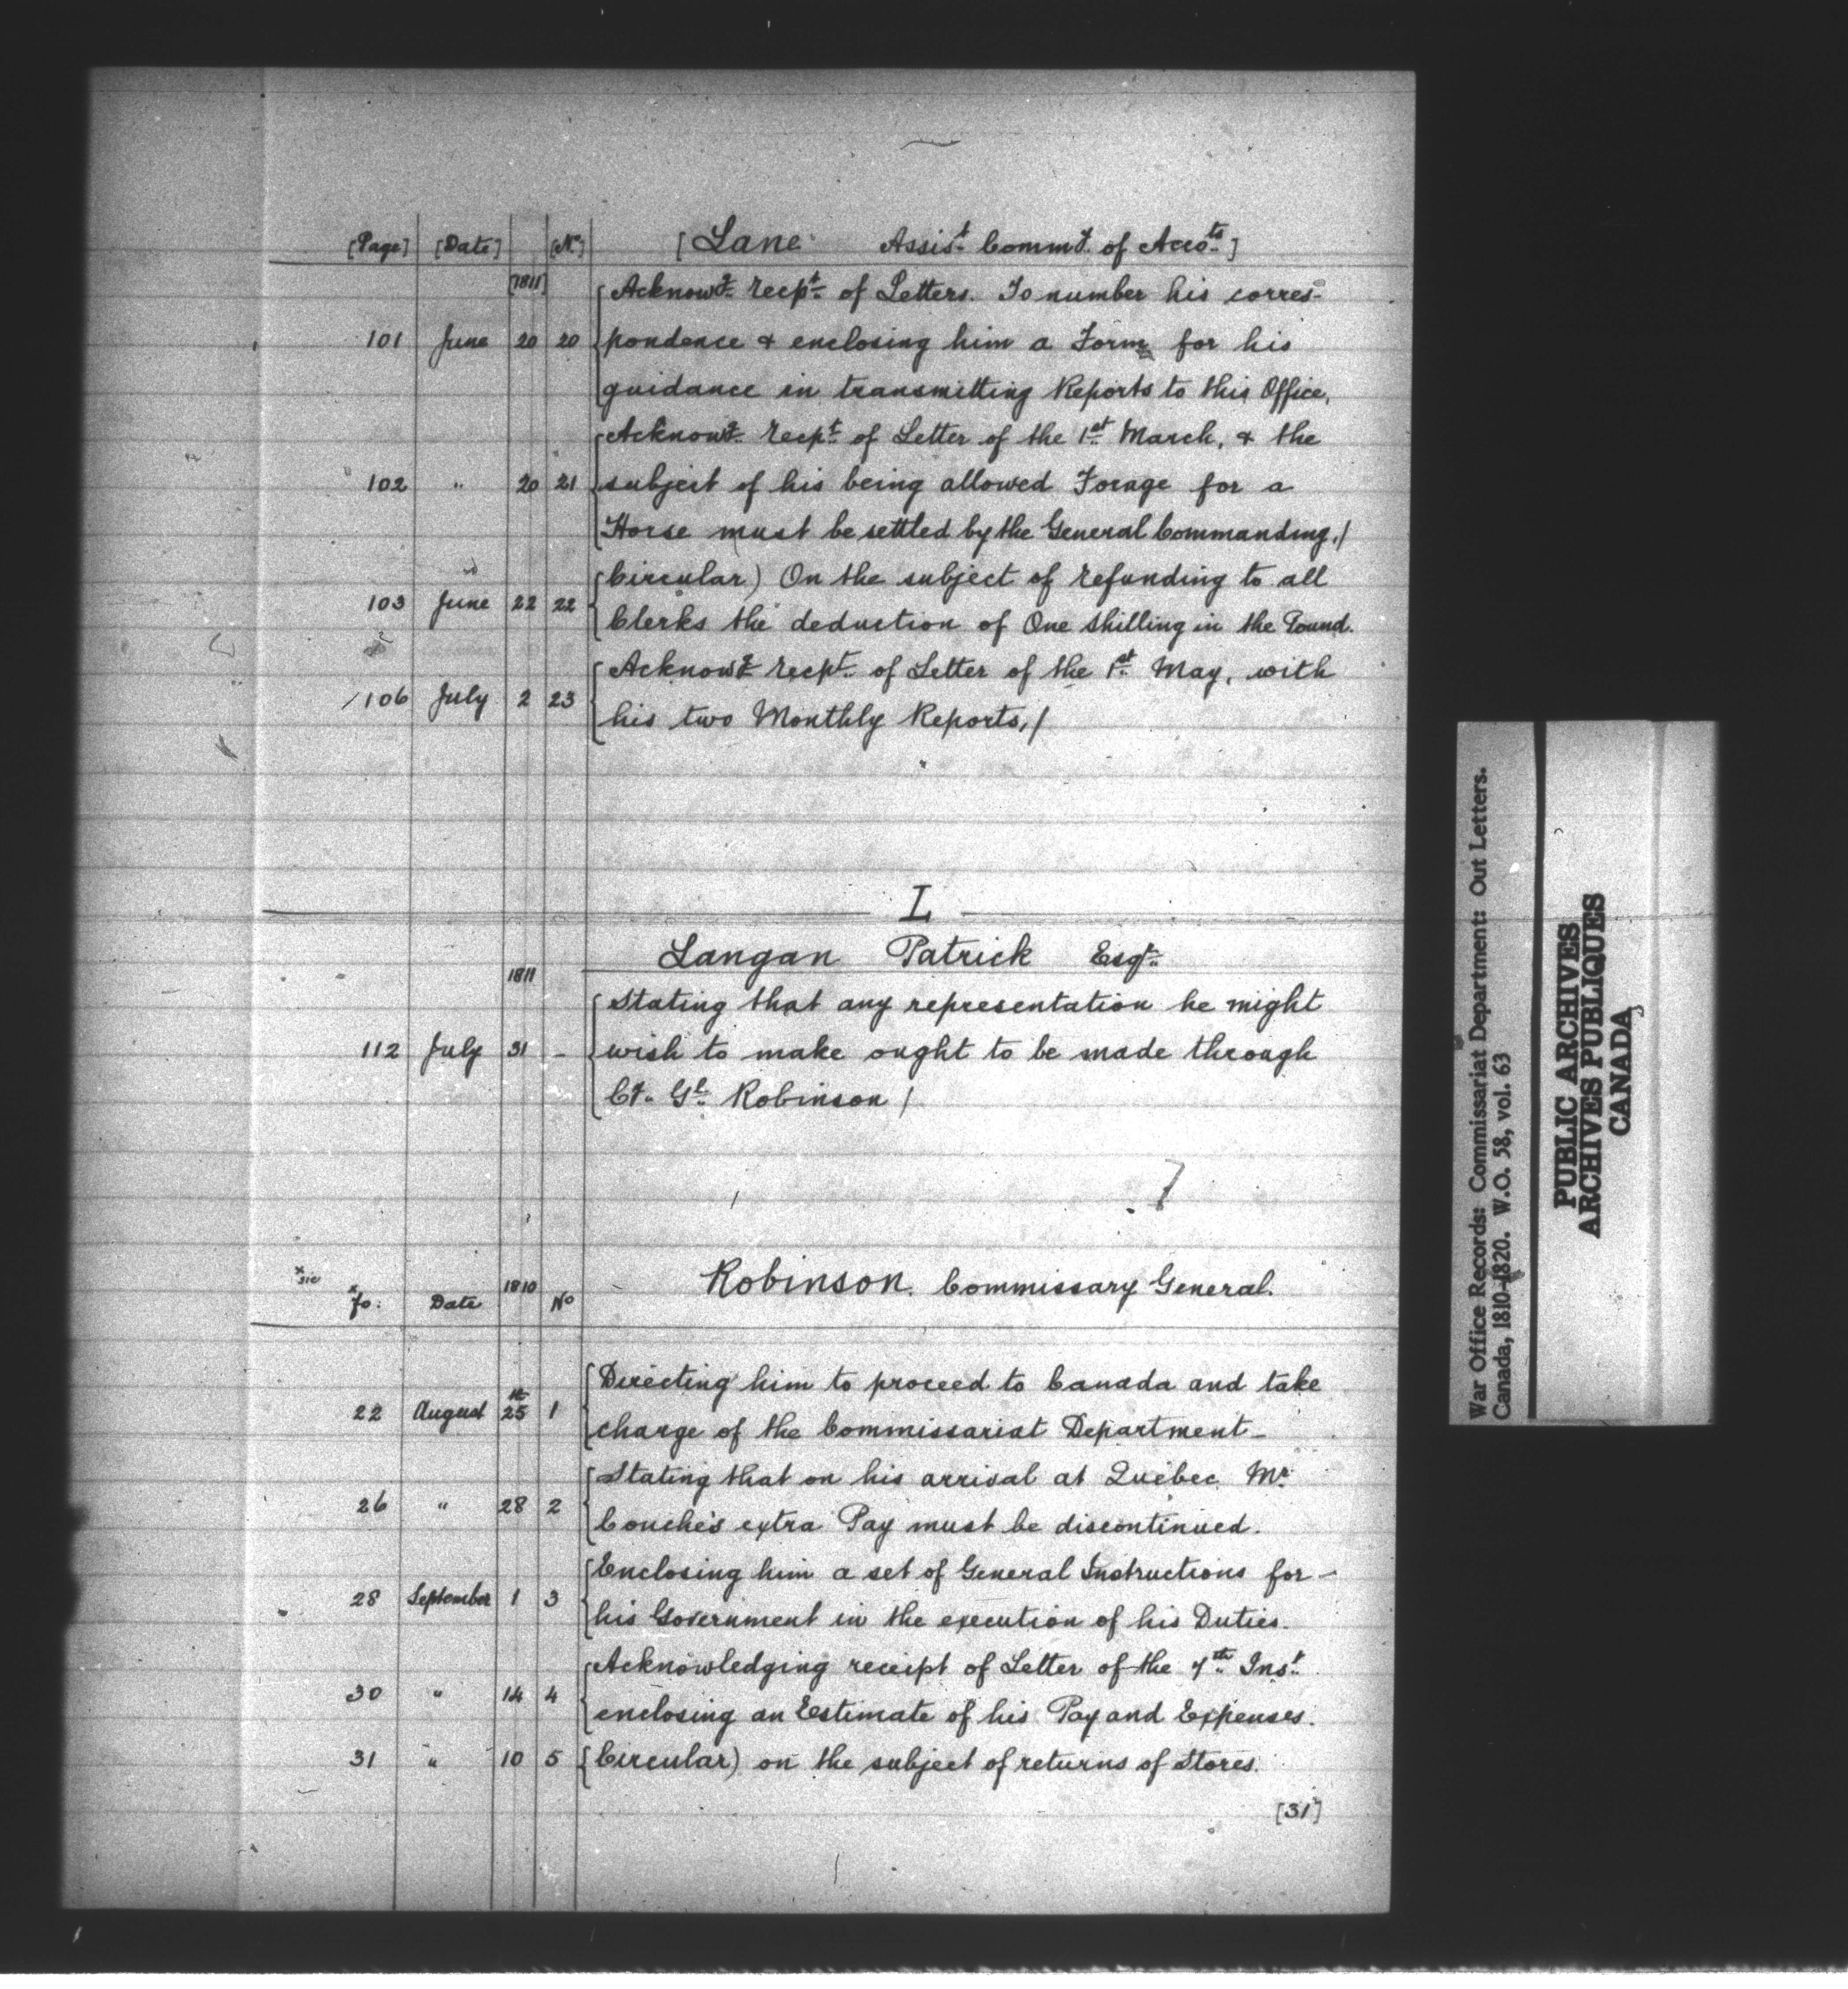 [Page] [Date] [No] [Lane Assist. Commy. of Accots.]
[1811] Acknowg. recpt. of Letters. To number his corres-
101 June 20 20 pondence & enclosing him a Form for his
guidance in transmitting Reports to this Office,
Acknowg. recpt. of Letter of the 1st March, & the
102 " 20 21 subject of his being allowed Forage for a
Horse must be settled by the General Commanding./
Circular) On the subject of refunding to all
103 June 22 22 Clerks the deduction of One Shilling in the Pound.
Acknowg. recpt. of Letter of the 1st. May, with
106 July 2 23 his two Monthly Reports,/
L
Langan Patrick Esqr.
1811
Stating that any representation he might
112 July 31 - wish to make ought to be made through
Cy. Gl. Robinson /
x sic
x fo: Date 1810 No Robinson. Commissary General.
Directing him to proceed to Canada and take
22 August 25th 1 charge of the Commissariat Department-
Stating that on his arrival at Quebec Mr.
26 " 28 2 Couche's extra Pay must be discontinued.
Enclosing him a set of General Instructions for-
28 September 1 3 his Government in the execution of his Duties.
Acknowledging receipt of Letter of the 7th. Inst.
30 " 14 4 enclosing an Estimate of his Pay and Expenses.
31 " 10 5 Circular) on the subject of returns of Stores.
[31]
War Office Records: Commissariat Department: Out Letters.
Canada, 1810-1820. W.O. 58, vol. 63
PUBLIC ARCHIVES
ARCHIVES PUBLIQUES
CANADA